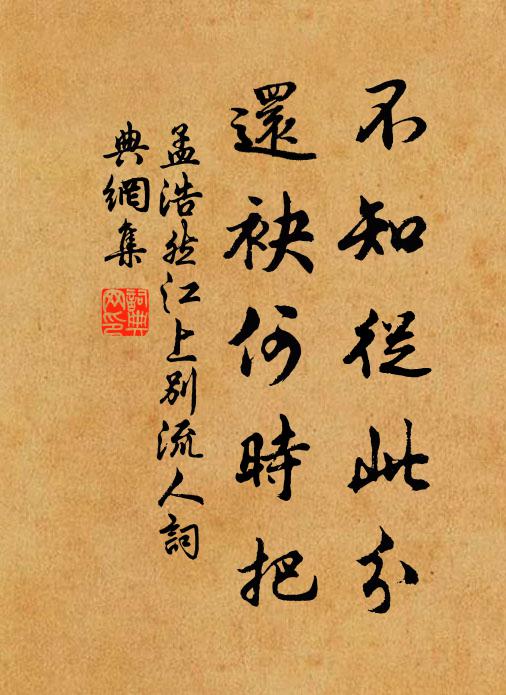 不知從此分
還袂何時把
孟浩然江上別流人詞
典網集
詞典
网印